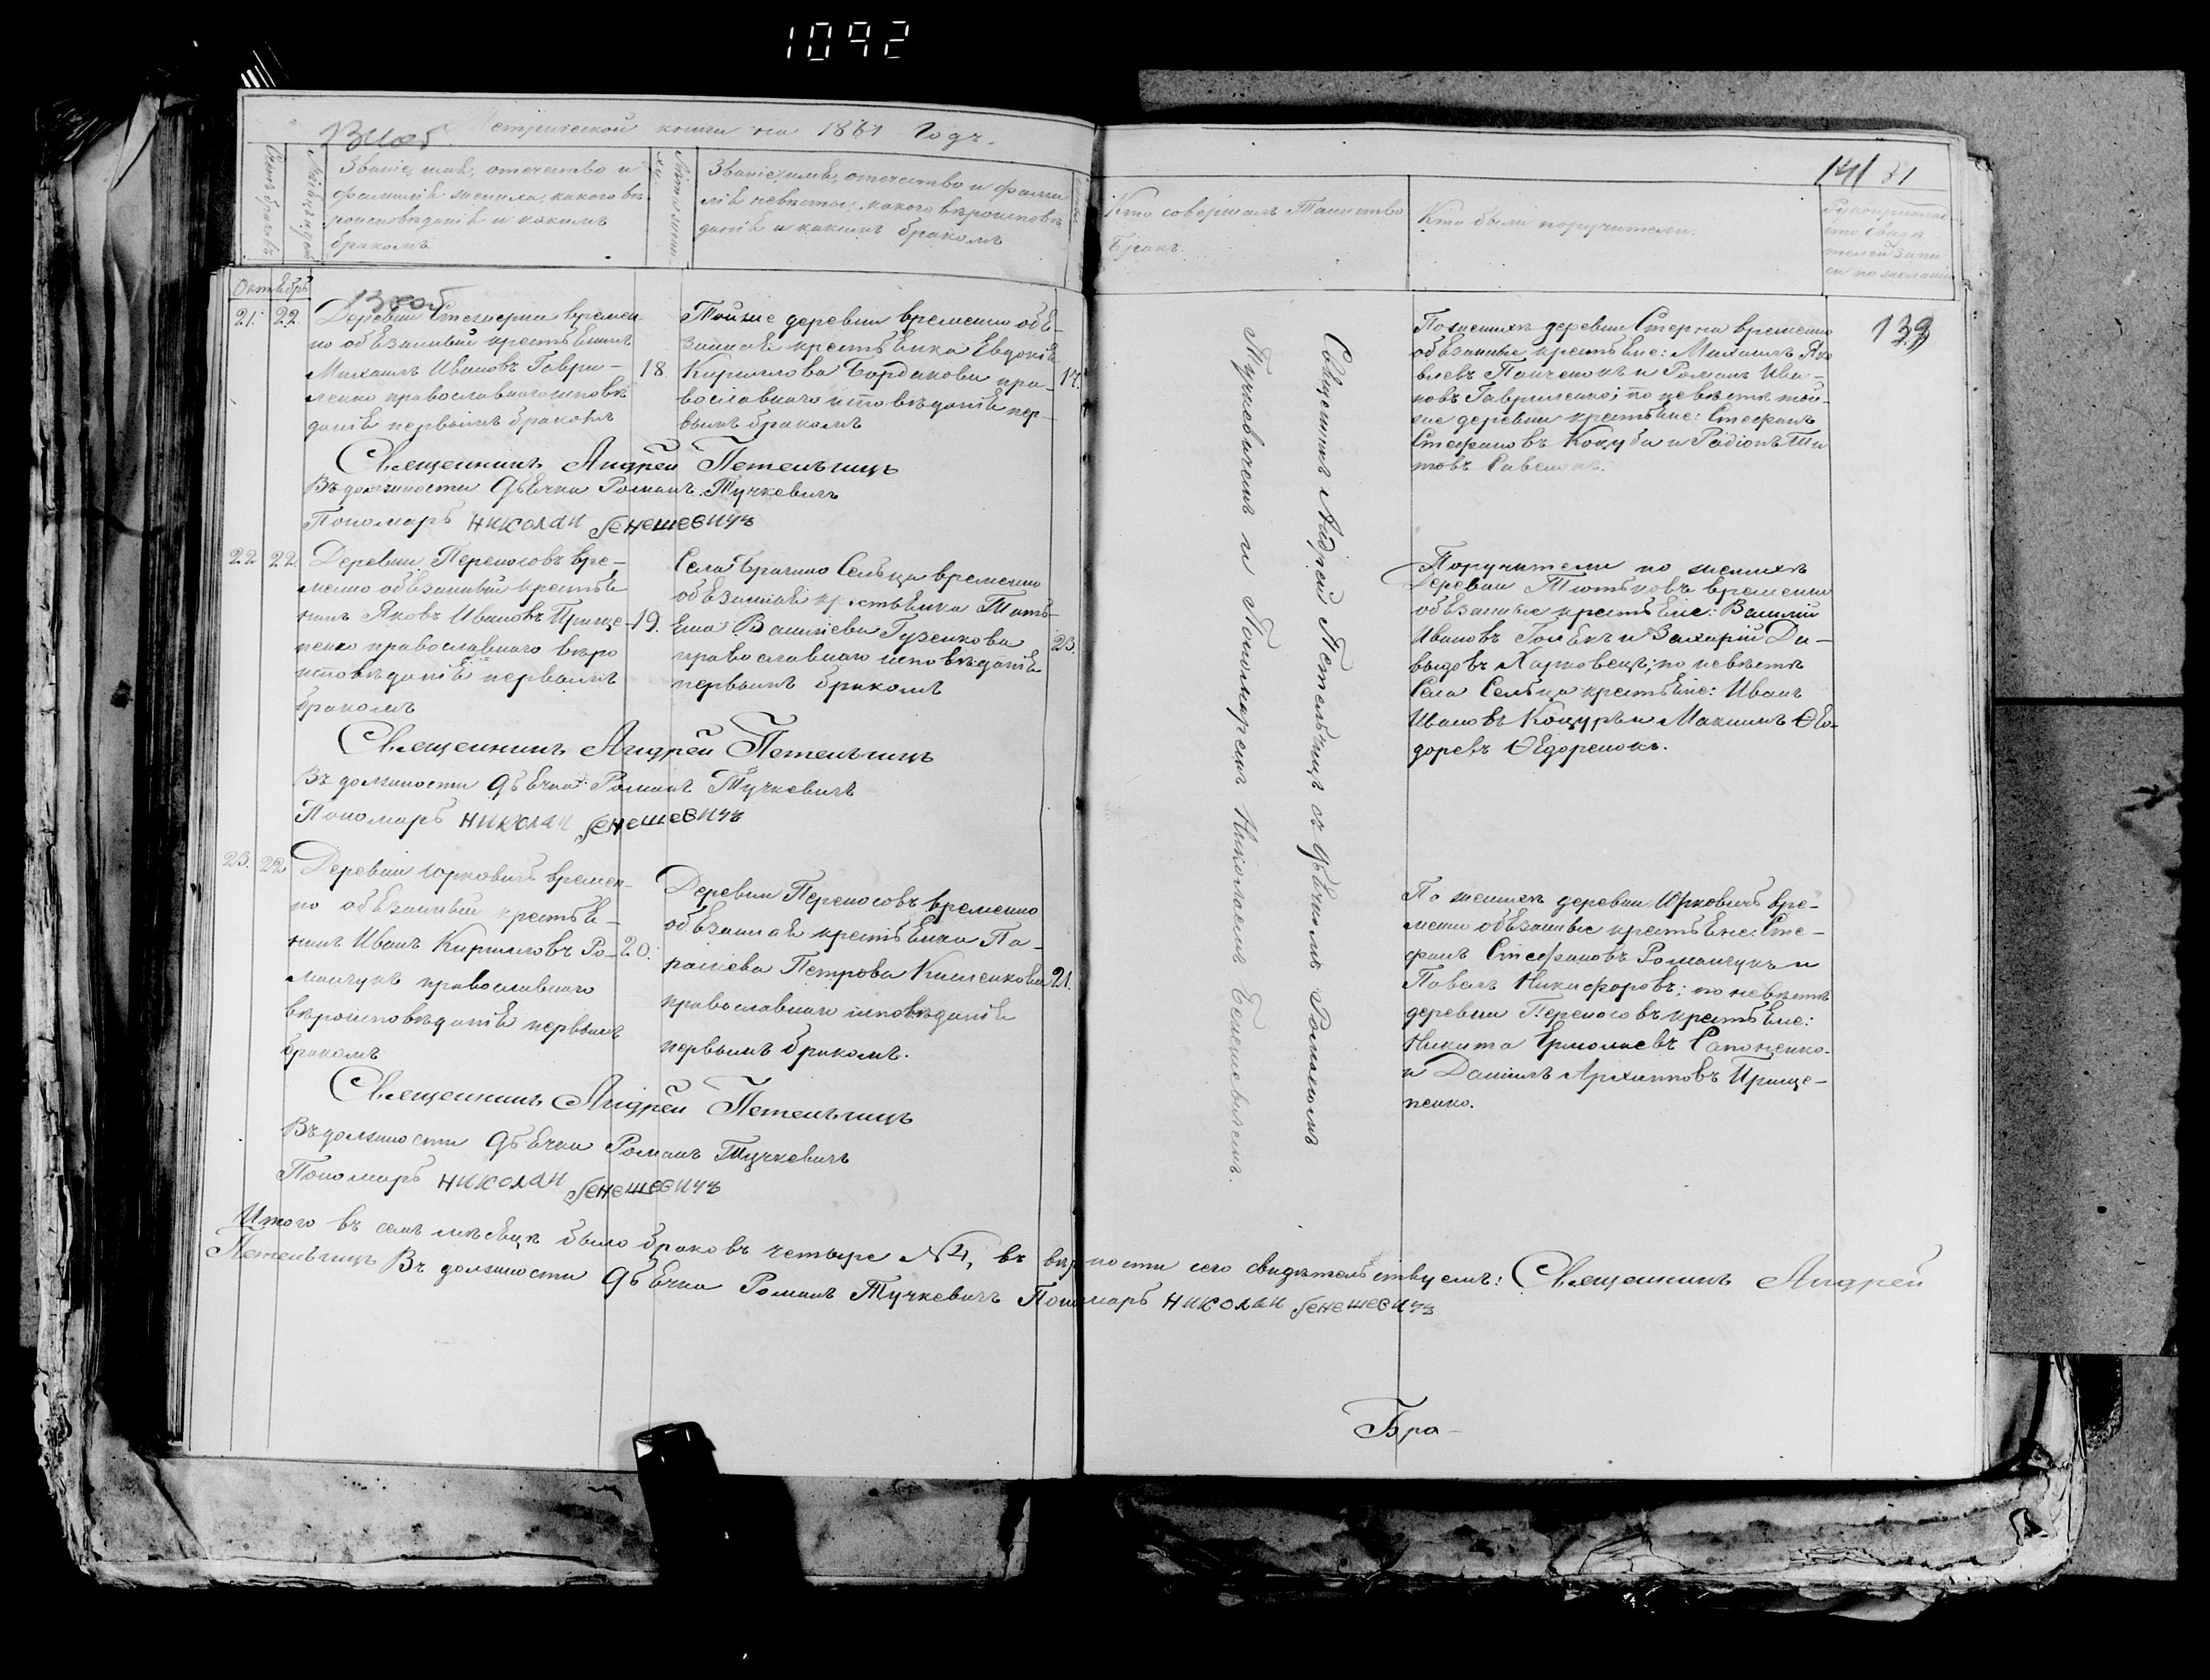 1092
Метрической книги на 1861 Годъ.
141 81
Счетъ браковъ
Званіе, имя, отечество и
фамилія жениха, какого вѣ-
роисповѣданія и какимъ
бракомъ
Званіе, имя, отечество и фами
лія невѣсты, какого вѣроисповѣ
данія и какимъ бракомъ
Кто совершалъ Таинство
Брака.
Кто были поручители.
Рукоприклад-
ство свидѣ
телей запи
си по желанію
Октябрь
21. 22.
Деревни времен
но обязанный крестьянинъ
Михаилъ Ивановъ Гаври-
ленко православнаго исповѣ
данія первымъ бракомъ
18.
Тойже деревни временно обя-
занная крестьянка Евдокія
Кириллова Бордакова пра-
вославнаго исповѣданія пер-
вымъ бракомъ
17.
По женихѣ деревни Стерни временно
обязанные крестьяне: Михаилъ Яко
влевъ Панченокъ и Романъ Ива-
новъ Гавриленко; по невѣстѣ той-
же деревни крестьяне: Стефанъ
Стефановъ Кокуба и Радіонъ Ти
товъ Савенокъ.
139
Священникъ Андрей Петельчицъ
Въ должности Дьячка Романъ Тучкевичъ
Пономарь Николай Бенешевичъ
22 22.
Деревни Переносовъ вре-
менно обязанный крестья
нинъ Яковъ Ивановъ Прище-
пенко православнаго вѣро
исповѣданія первымъ
бракомъ
19.
Села Брагино Сельца временно
обязанная крестьянка Тать-
яна Васильева Гузенкова
православнаго исповѣданія
первымъ бракомъ
23.
Поручители по женихѣ
Деревни Тютьковъ временно
обязанные крестьяне: Василій
Ивановъ и Захарій Да-
выдовъ Харковецъ; по невѣстѣ
Села Сельца крестьяне: Иванъ
Ивановъ Коцуръ и Максимъ Ѳео-
доревъ Ѳедоренокъ.
Священникъ Андрей Петельчицъ
Въ должности Дьячка Романъ Тучкевичъ
Пономарь Николай Бенешевичъ
23. 22
Деревни Юрковичъ времен-
но обязанный крестья-
нинъ Иванъ Кирилловъ Ро-
манчукъ православнаго
вѣроисповѣданія первымъ
бракомъ
20.
Деревни Переносовъ временно
обязанная крестьянка Па-
раскева Петрова Кисленкова
православнаго исповѣданія
первымъ бракомъ.
21.
По женихѣ деревни Юрковичъ вре-
менно обязанные крестьяне: Сте-
фанъ Стефановъ Романчукъ и
Павелъ Никифоровъ; по невѣстѣ
деревни Переносовъ крестьяне:
Никита Ермолаевъ Сапоненко
и Даніилъ Архиповъ Прище-
пенко.
Священникъ Андрей Петельчицъ
Въ должности Дьячка Романъ Тучкевичъ
Пономарь Николай Бенешевичъ
Священникъ Андрей Петельчицъ съ дьячкомъ Романомъ
Тучкевичемъ и Пономаремъ Николаемъ Бенешевичемъ.
Итого въ семъ мѣсяцѣ было браковъ четыре №4, въ вѣрности сего свидѣтельствуемъ: Священникъ Андрей
Петельчицъ Въ должности Дьячка Романъ Тучкевичъ Пономарь Николай Бенешевичъ
Бра-